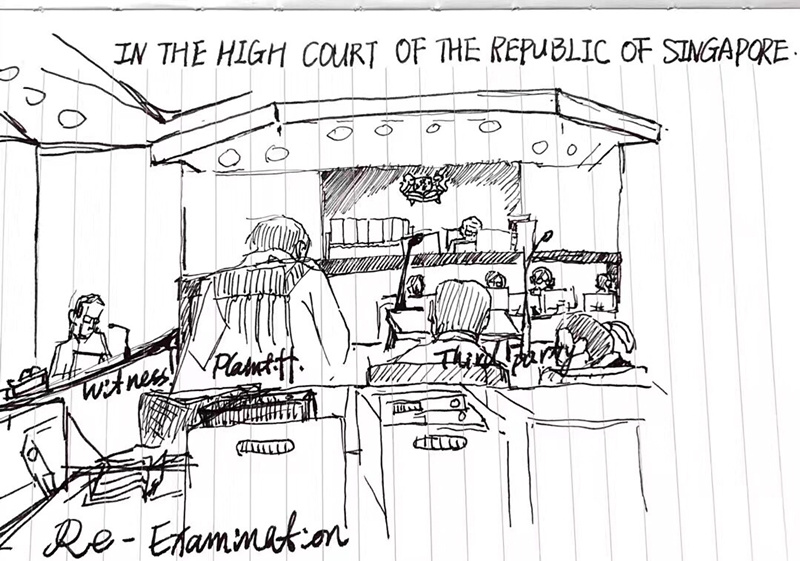 IN THE HIGH COURT OF THE REPUBLIC OF SINGAPORE.
Witness
Plaintiff.
Third party
Re-Examination